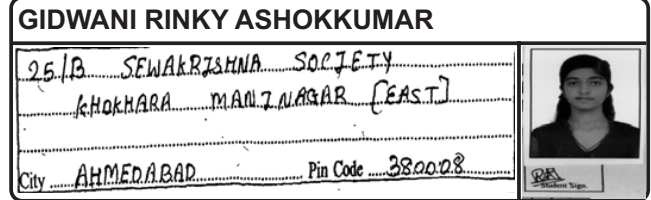 GIDWANI RINKY ASHOKKUMAR
25/B SEWAKRISHNA SOCIETY
KHOKHARA MANINAGAR [EAST]
City AHMEDABAD Pin Code 380008
Student Sign.